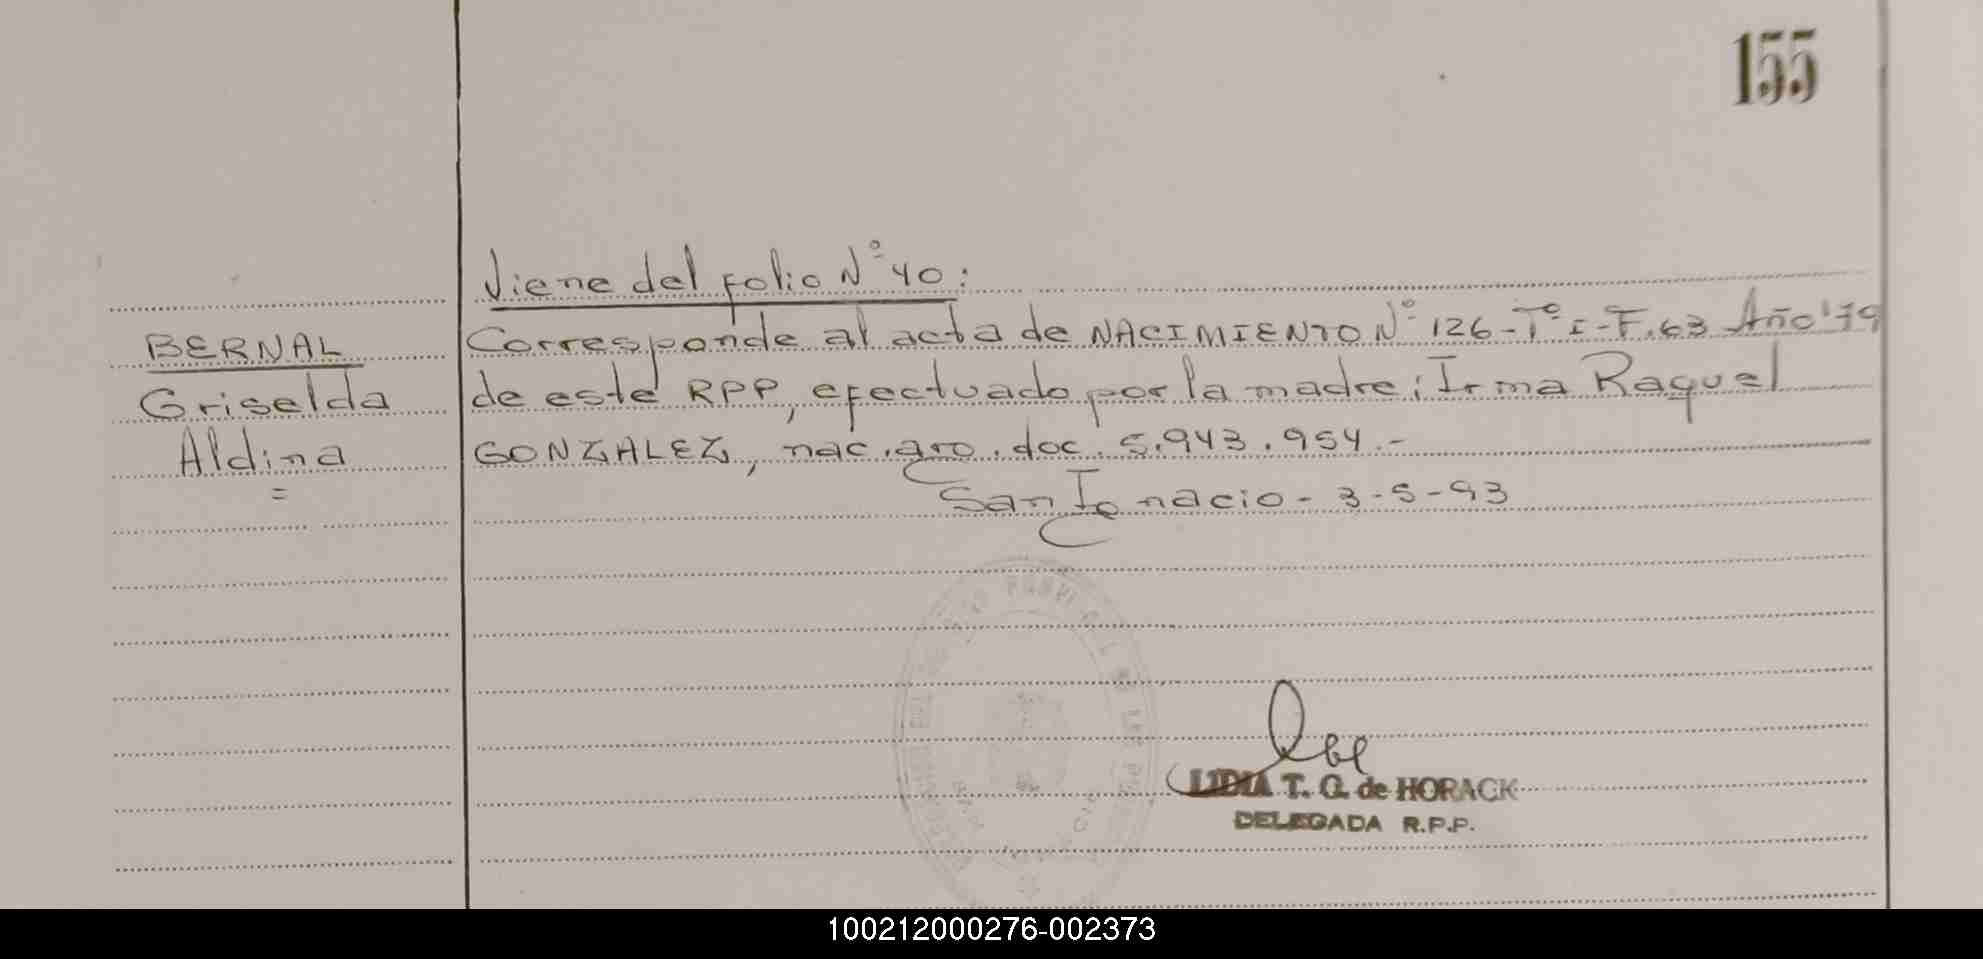 155
Viene del folio Nº 40:
BERNAL
Griselda
Aldina
=
Corresponde al acta de NACIMIENTO Nº 126-Tº I-F.63 Año '79
de este RPP, efectuado por la madre; Irma Raquel
GONZALEZ, nac. arg. doc. 5.943.954.-
San Ignacio - 3-5-93
LIDIA T. G. de HORACK
DELEGADA R.P.P.
100212000276-002373